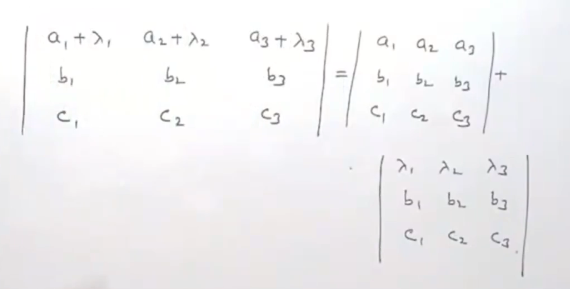 | a₁ + λ₁ a₂ + λ₂ a₃ + λ₃ | = | a₁ a₂ a₃ | +
| b₁ b₂ b₃ | | b₁ b₂ b₃ |
| c₁ c₂ c₃ | | c₁ c₂ c₃ |
| λ₁ λ₂ λ₃ |
| b₁ b₂ b₃ |
| c₁ c₂ c₃ |